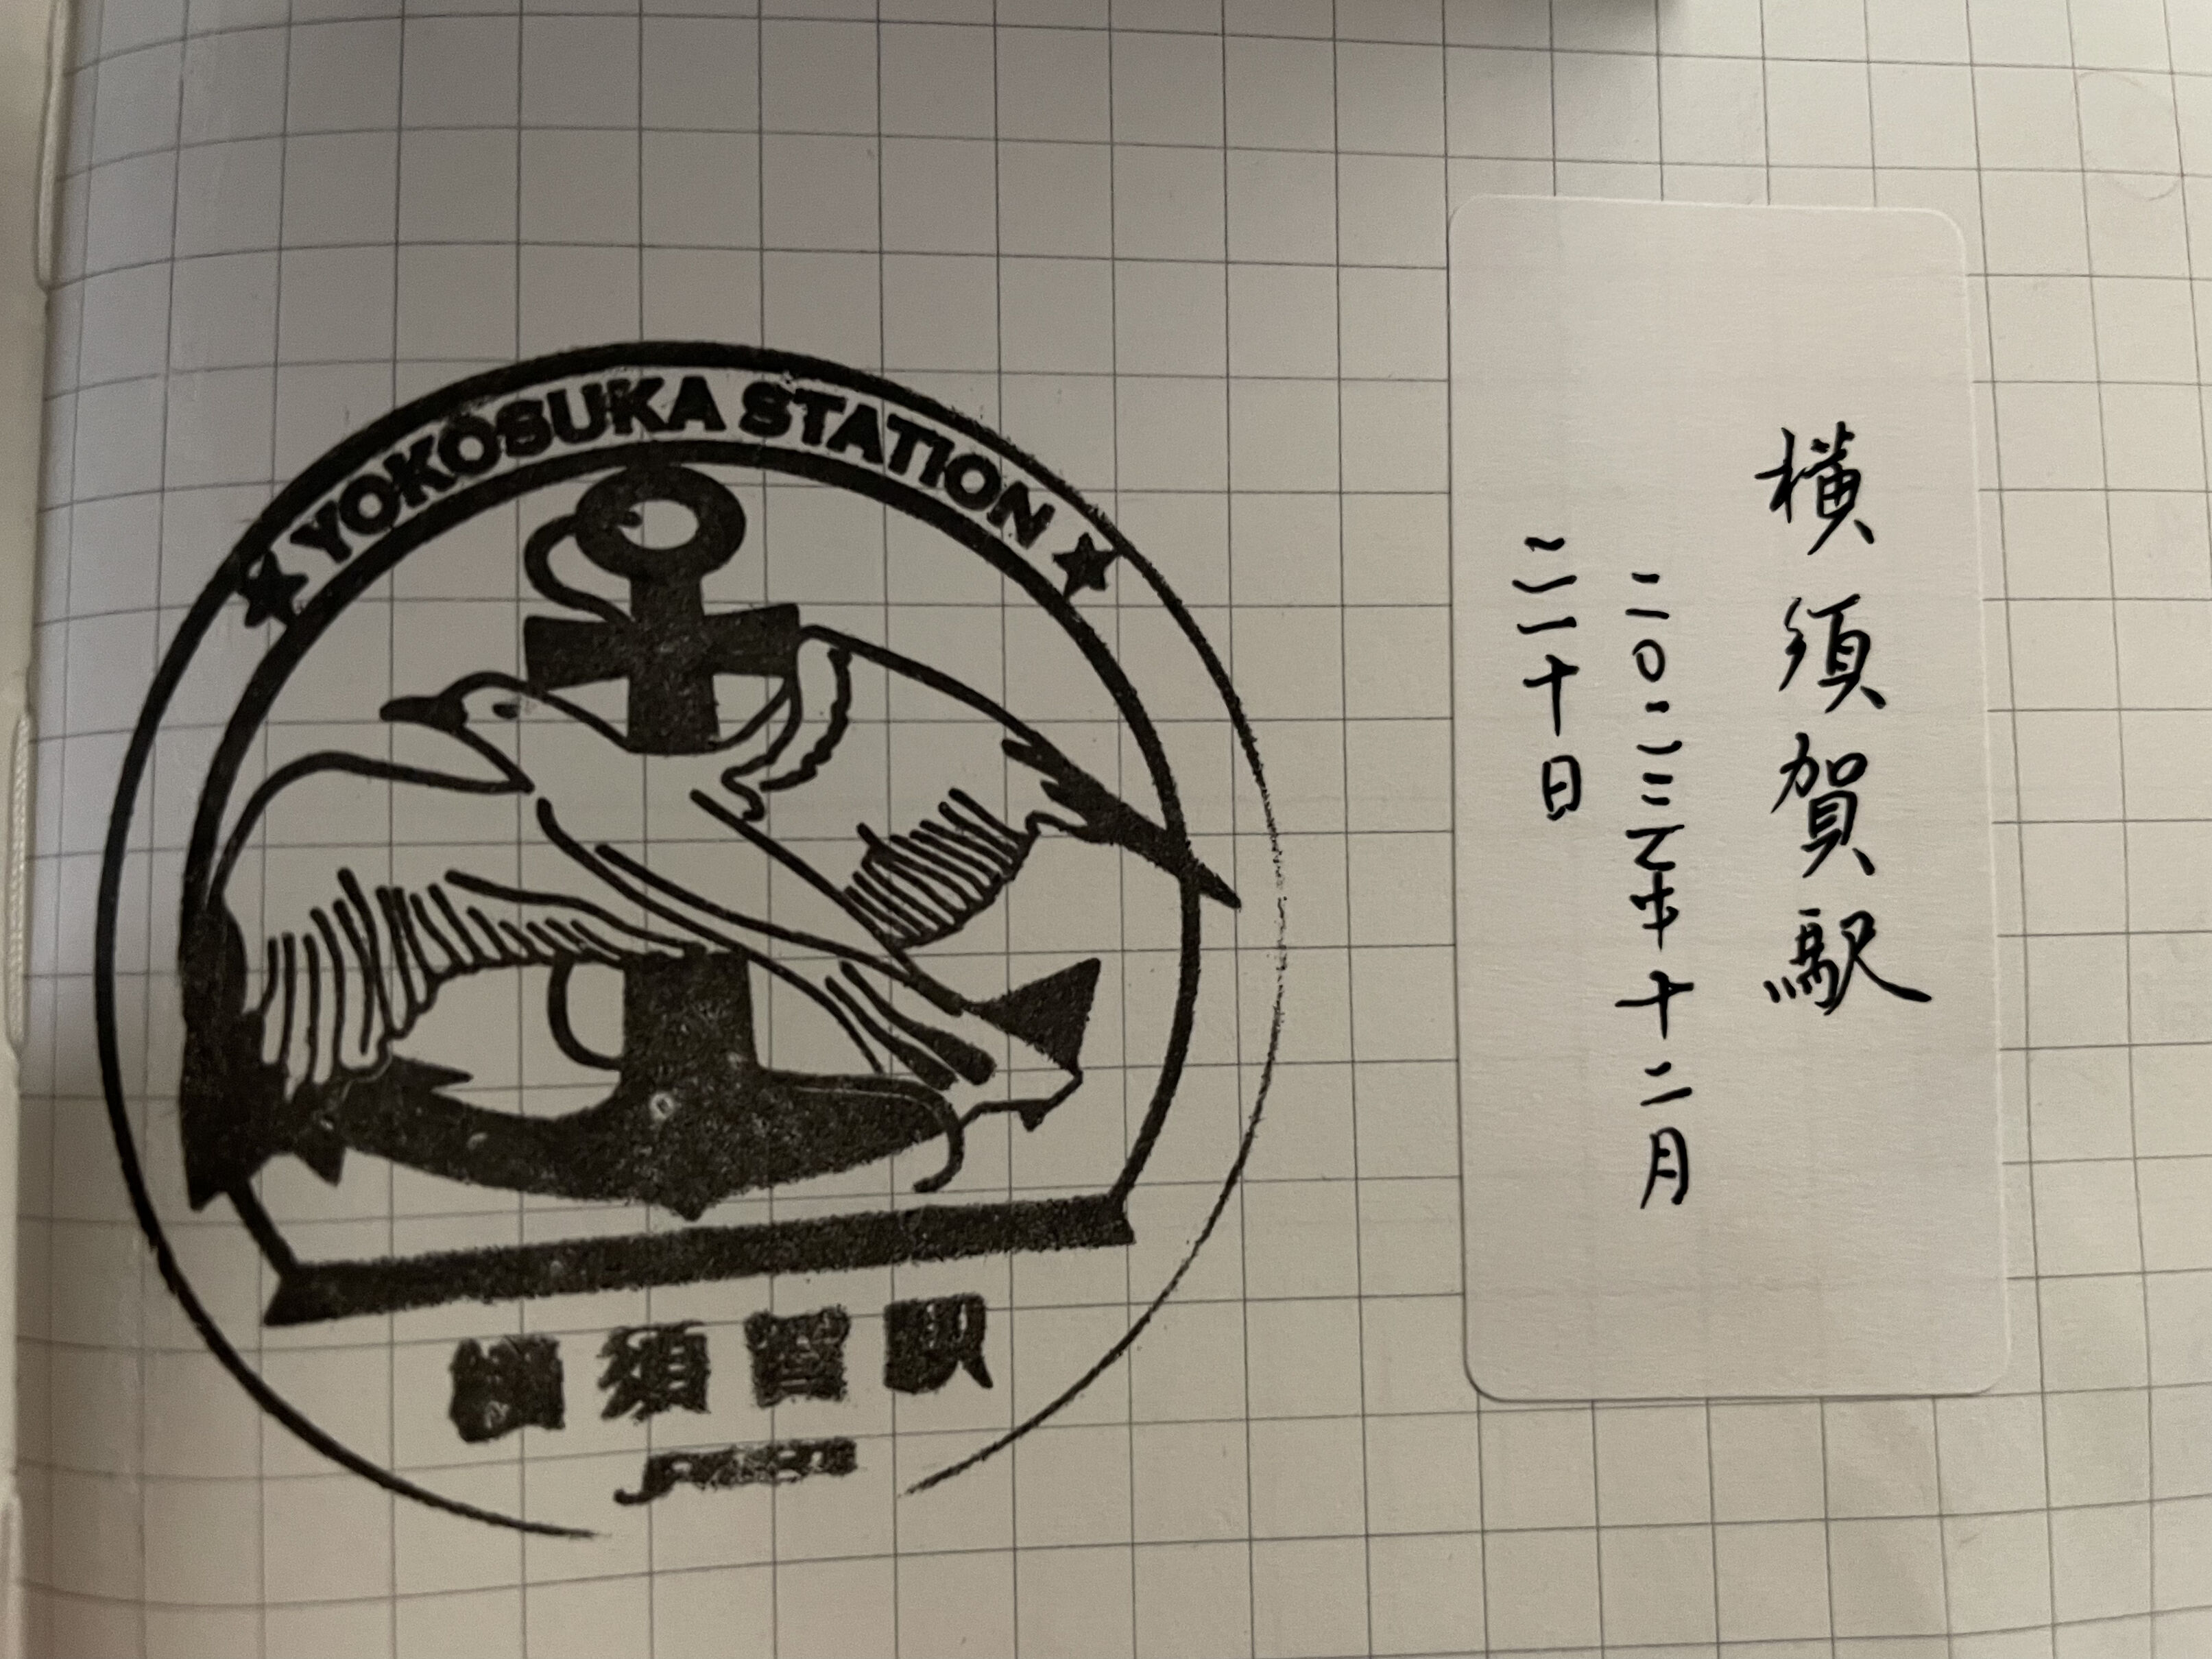 YOKOSUKA STATION
横須賀駅
横須賀駅
二〇二三年十二月
三十日